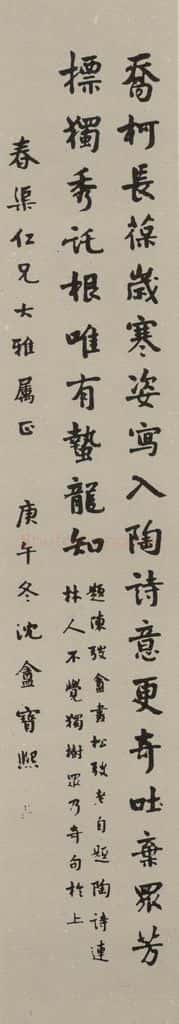 喬柯長葆歲寒姿寫入陶詩意更奇吐棄眾芳
標獨秀託根唯有蟄龍知
題陳弢盦畫松弢老自題陶詩連
林人不覺獨樹眾乃奇句於上
春渠仁兄大雅屬正 庚午冬沈盦寶熙